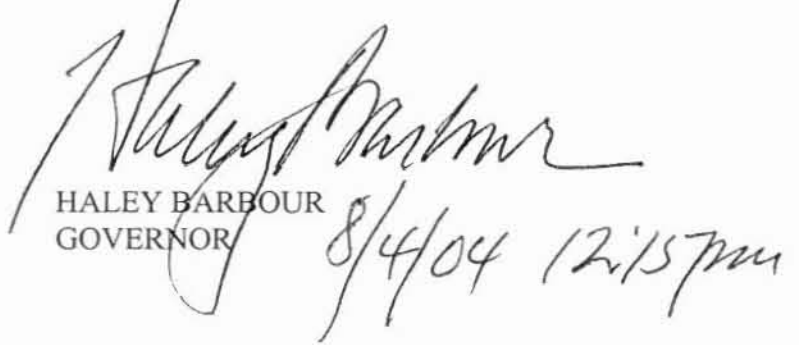 Haley Barbour
HALEY BARBOUR
GOVERNOR
8/4/04 12:15 pm